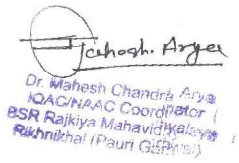 Mahesh. Arya
Dr. Mahesh Chandra Arya
IQAC/NAAC Coordinator
BSR Rajkiya Mahavidyalaya
Rikhnikhal (Pauri Garhwal)